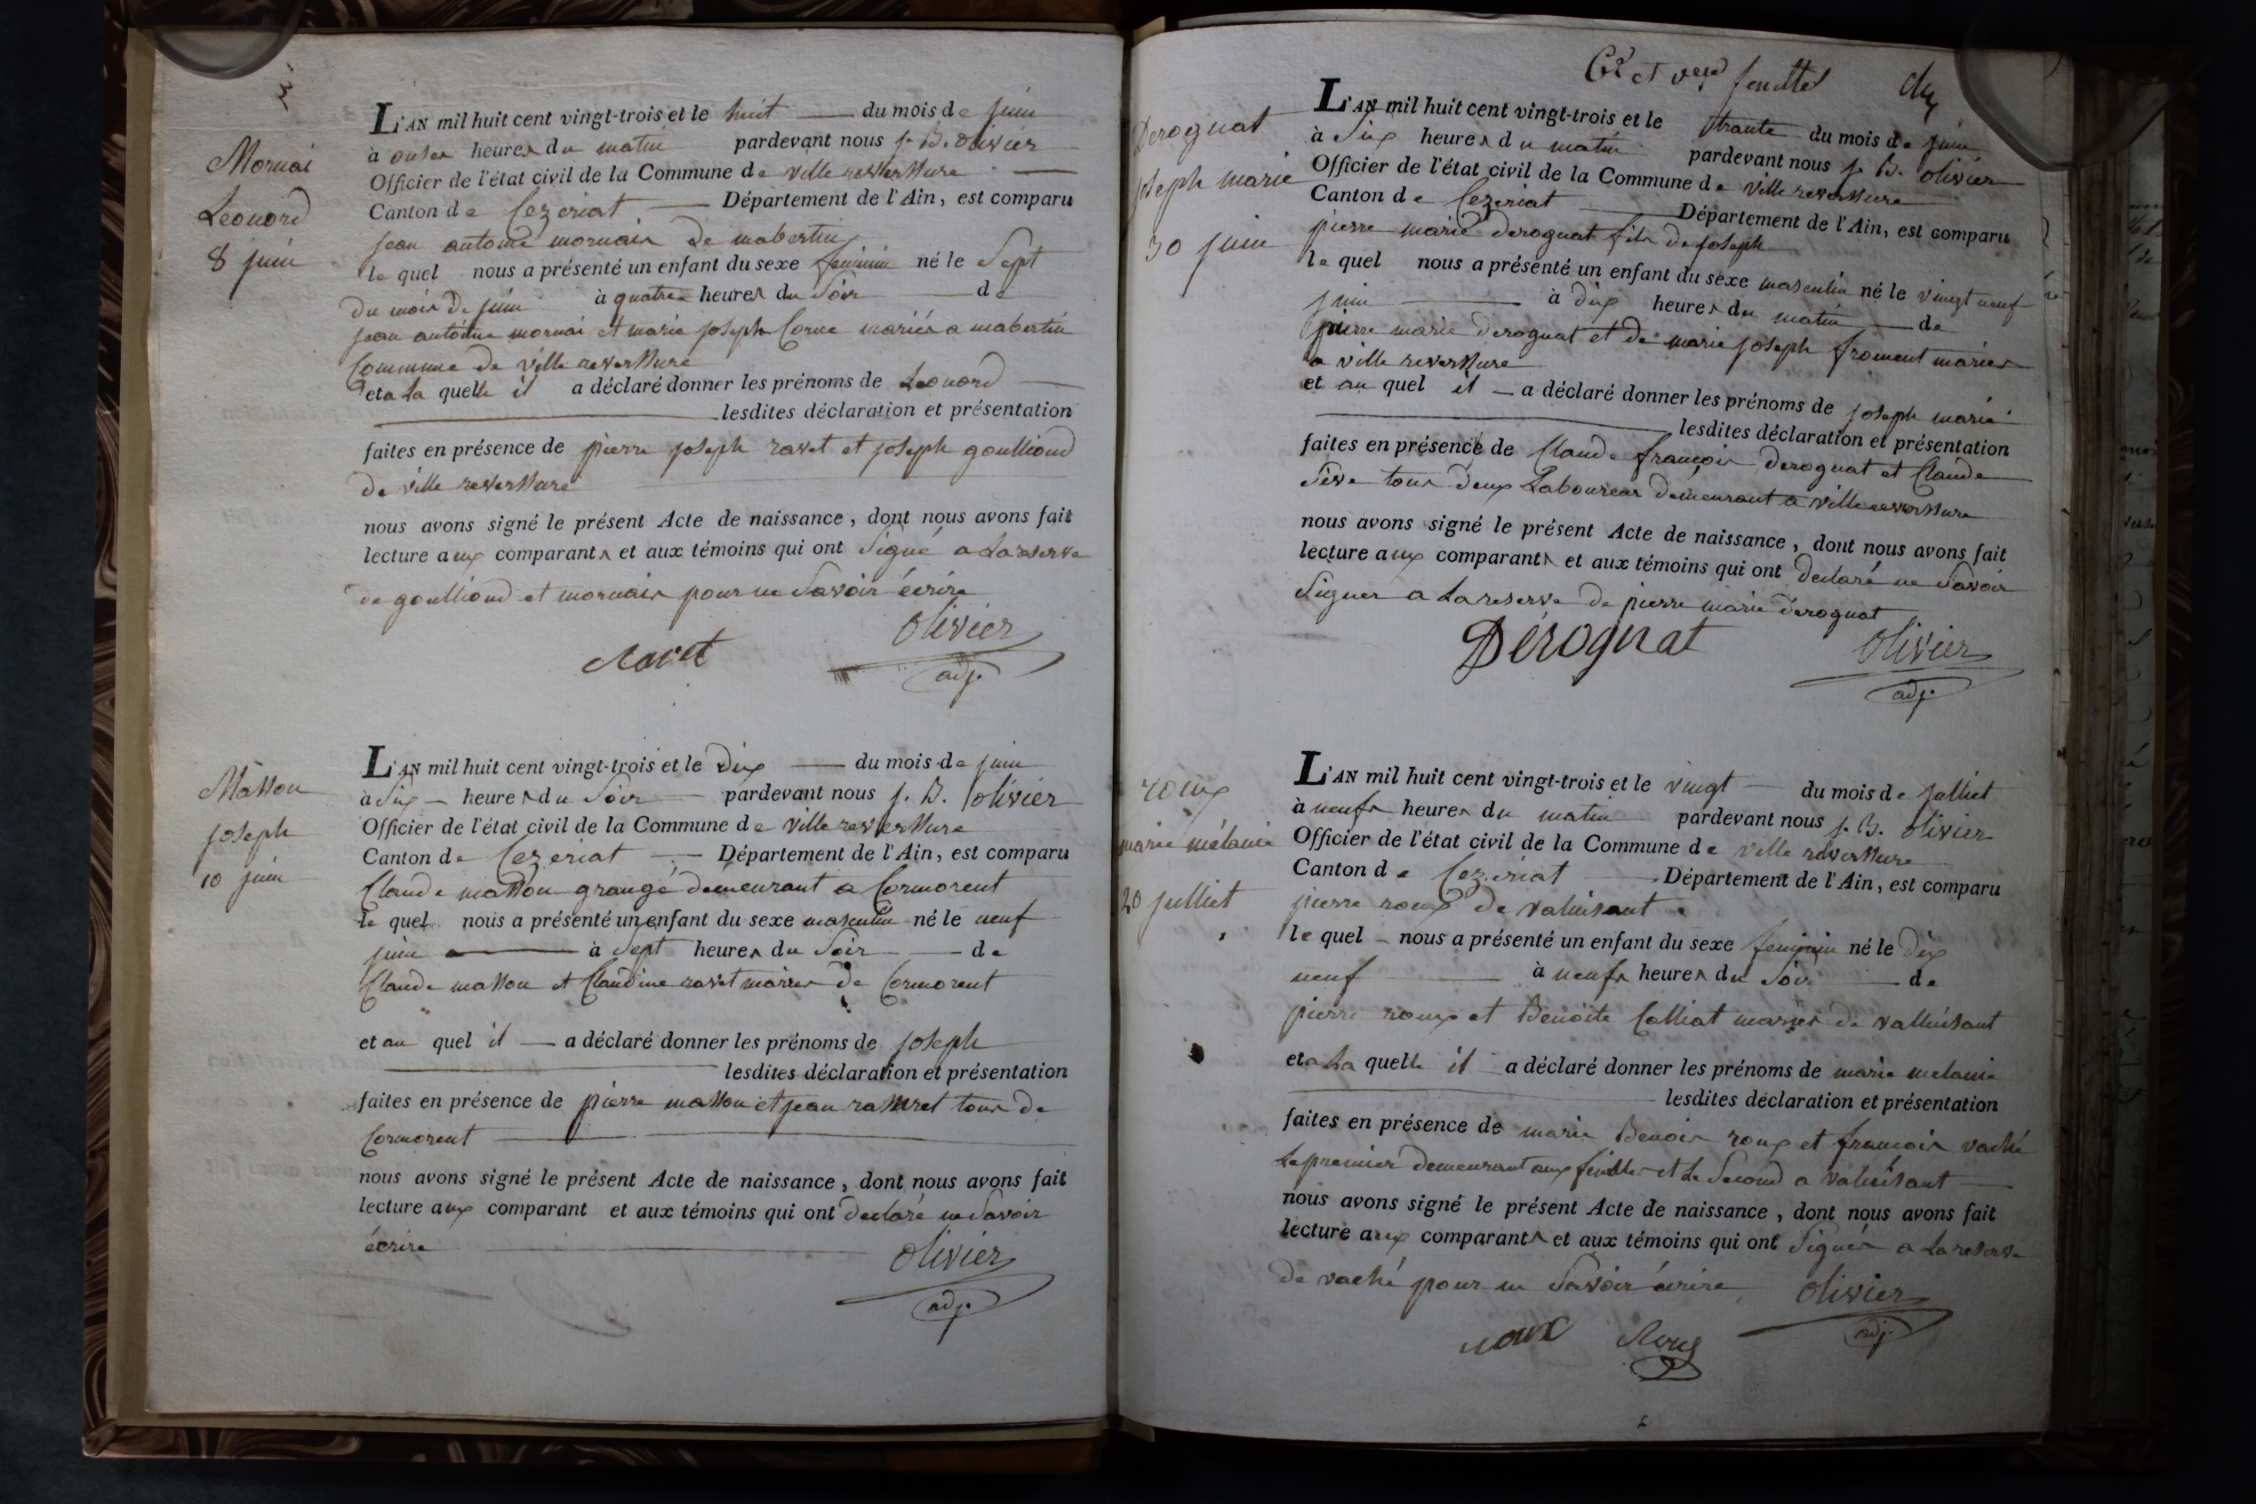 Mornai
Léonord
8 juin
L'AN mil huit cent vingt-trois et le huit du mois de juin
à onses heures du matin pardevant nous j. B. olivier
Officier de l'état civil de la Commune de ville reverssure
Canton de Cezeriat Département de l'Ain, est comparu
jean antoine mornais de mabertin
le quel nous a présenté un enfant du sexe feminin né le Sept
du mois de juin à quatre heures du Soir de
jean antoine mornai et marie joseph Corne mariés a mabertin
Commune de ville reverssure
et a La quelle il a déclaré donner les prénoms de Léonord
lesdites déclaration et présentation
faites en présence de pierre joseph ravet et joseph goulliond
de ville reverssure
nous avons signé le présent Acte de naissance, dont nous avons fait
lecture aux comparants et aux témoins qui ont Signé a La reserve
de goulliond et mornais pour ne Savoir écrire
Ravet olivier
adj.
Masson
joseph
10 juin
L'AN mil huit cent vingt-trois et le Dix du mois de juin
à Six heures du Soir pardevant nous j. B. olivier
Officier de l'état civil de la Commune de ville reverssure
Canton de Cezeriat Département de l'Ain, est comparu
Claude masson grangé demeurant a Cormorent
le quel nous a présenté un enfant du sexe masculin né le neuf
juin à Sept heures du Soir de
Claude masson et Claudine ravet mariés de Cormorent
et au quel il a déclaré donner les prénoms de joseph
lesdites déclaration et présentation
faites en présence de pierre masson et jean tous de
Cormorent
nous avons signé le présent Acte de naissance, dont nous avons fait
lecture aux comparant et aux témoins qui ont declaré ne Savoir
écrire
olivier
adj.
et feuillet
Derognat
joseph marie
30 juin
L'AN mil huit cent vingt-trois et le trante du mois de juin
à Six heures du matin pardevant nous j. B. olivier
Officier de l'état civil de la Commune de ville reverssure
Canton de Cezeriat Département de l'Ain, est comparu
pierre marie derognat fils de joseph
le quel nous a présenté un enfant du sexe masculin né le vingt neuf
juin à dix heures du matin de
pierre marie derognat et de marie joseph froment mariés
a ville reverssure
et au quel il a déclaré donner les prénoms de joseph marie
lesdites déclaration et présentation
faites en présence de Claude françois derognat et Claude
Sève tous deux Laboureur demeurant a ville reverssure
nous avons signé le présent Acte de naissance, dont nous avons fait
lecture aux comparants et aux témoins qui ont declaré ne Savoir
Signer a La reserve de pierre marie derognat
Dérognat olivier
adj.
roux
marie mélanie
20 julliet
L'AN mil huit cent vingt-trois et le vingt du mois de julliet
à neufs heures du matin pardevant nous j. B. olivier
Officier de l'état civil de la Commune de ville reverssure
Canton de Cezeriat Département de l'Ain, est comparu
pierre roux de valuisant
le quel nous a présenté un enfant du sexe feminin né le Dix
neuf à neufs heures du Soir de
pierre roux et Benoite Calliat mariés de valluisant
et a La quelle il a déclaré donner les prénoms de marie melanie
lesdites déclaration et présentation
faites en présence de marie Benois roux et francois vaché
Le premier demeurant aux et Le Second a valuisant
nous avons signé le présent Acte de naissance, dont nous avons fait
lecture aux comparants et aux témoins qui ont Signés a La reserve
de vaché pour ne Savoir écrire olivier
adj.
roux Roux